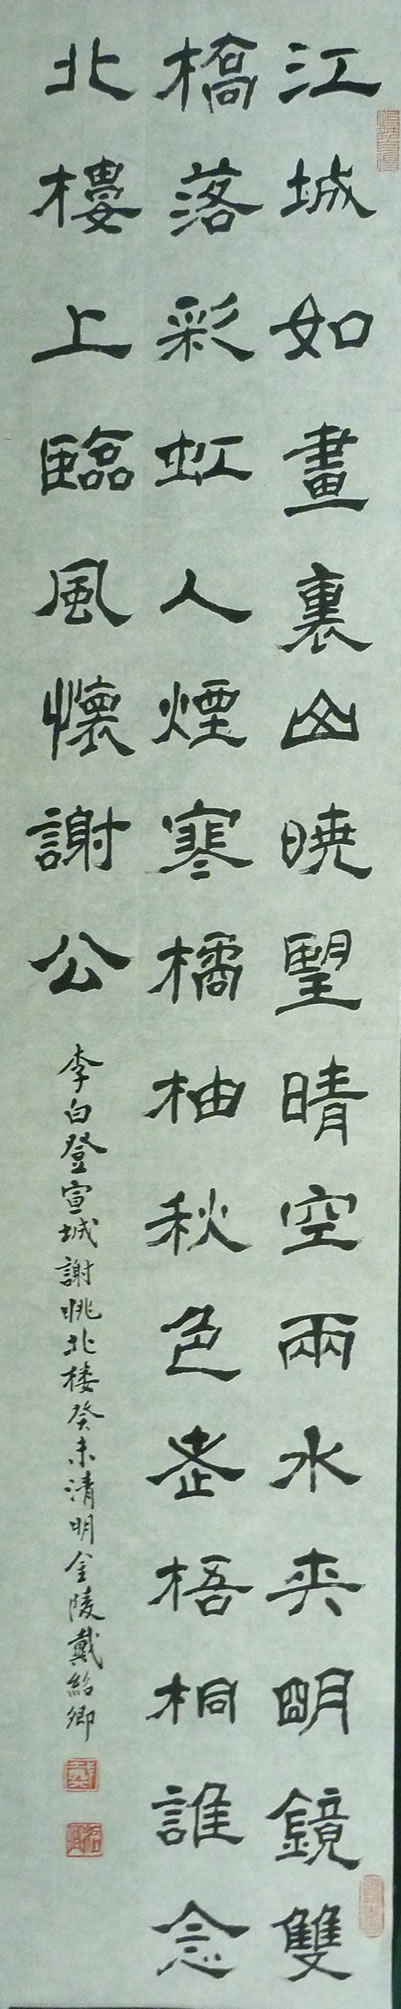 江城如畫裏山曉望晴空兩水夾明鏡雙
橋落彩虹人煙寒橘柚秋色老梧桐誰念
北樓上臨風懷謝公
李白登宣城謝眺北楼癸未清明金陵戴紹卿